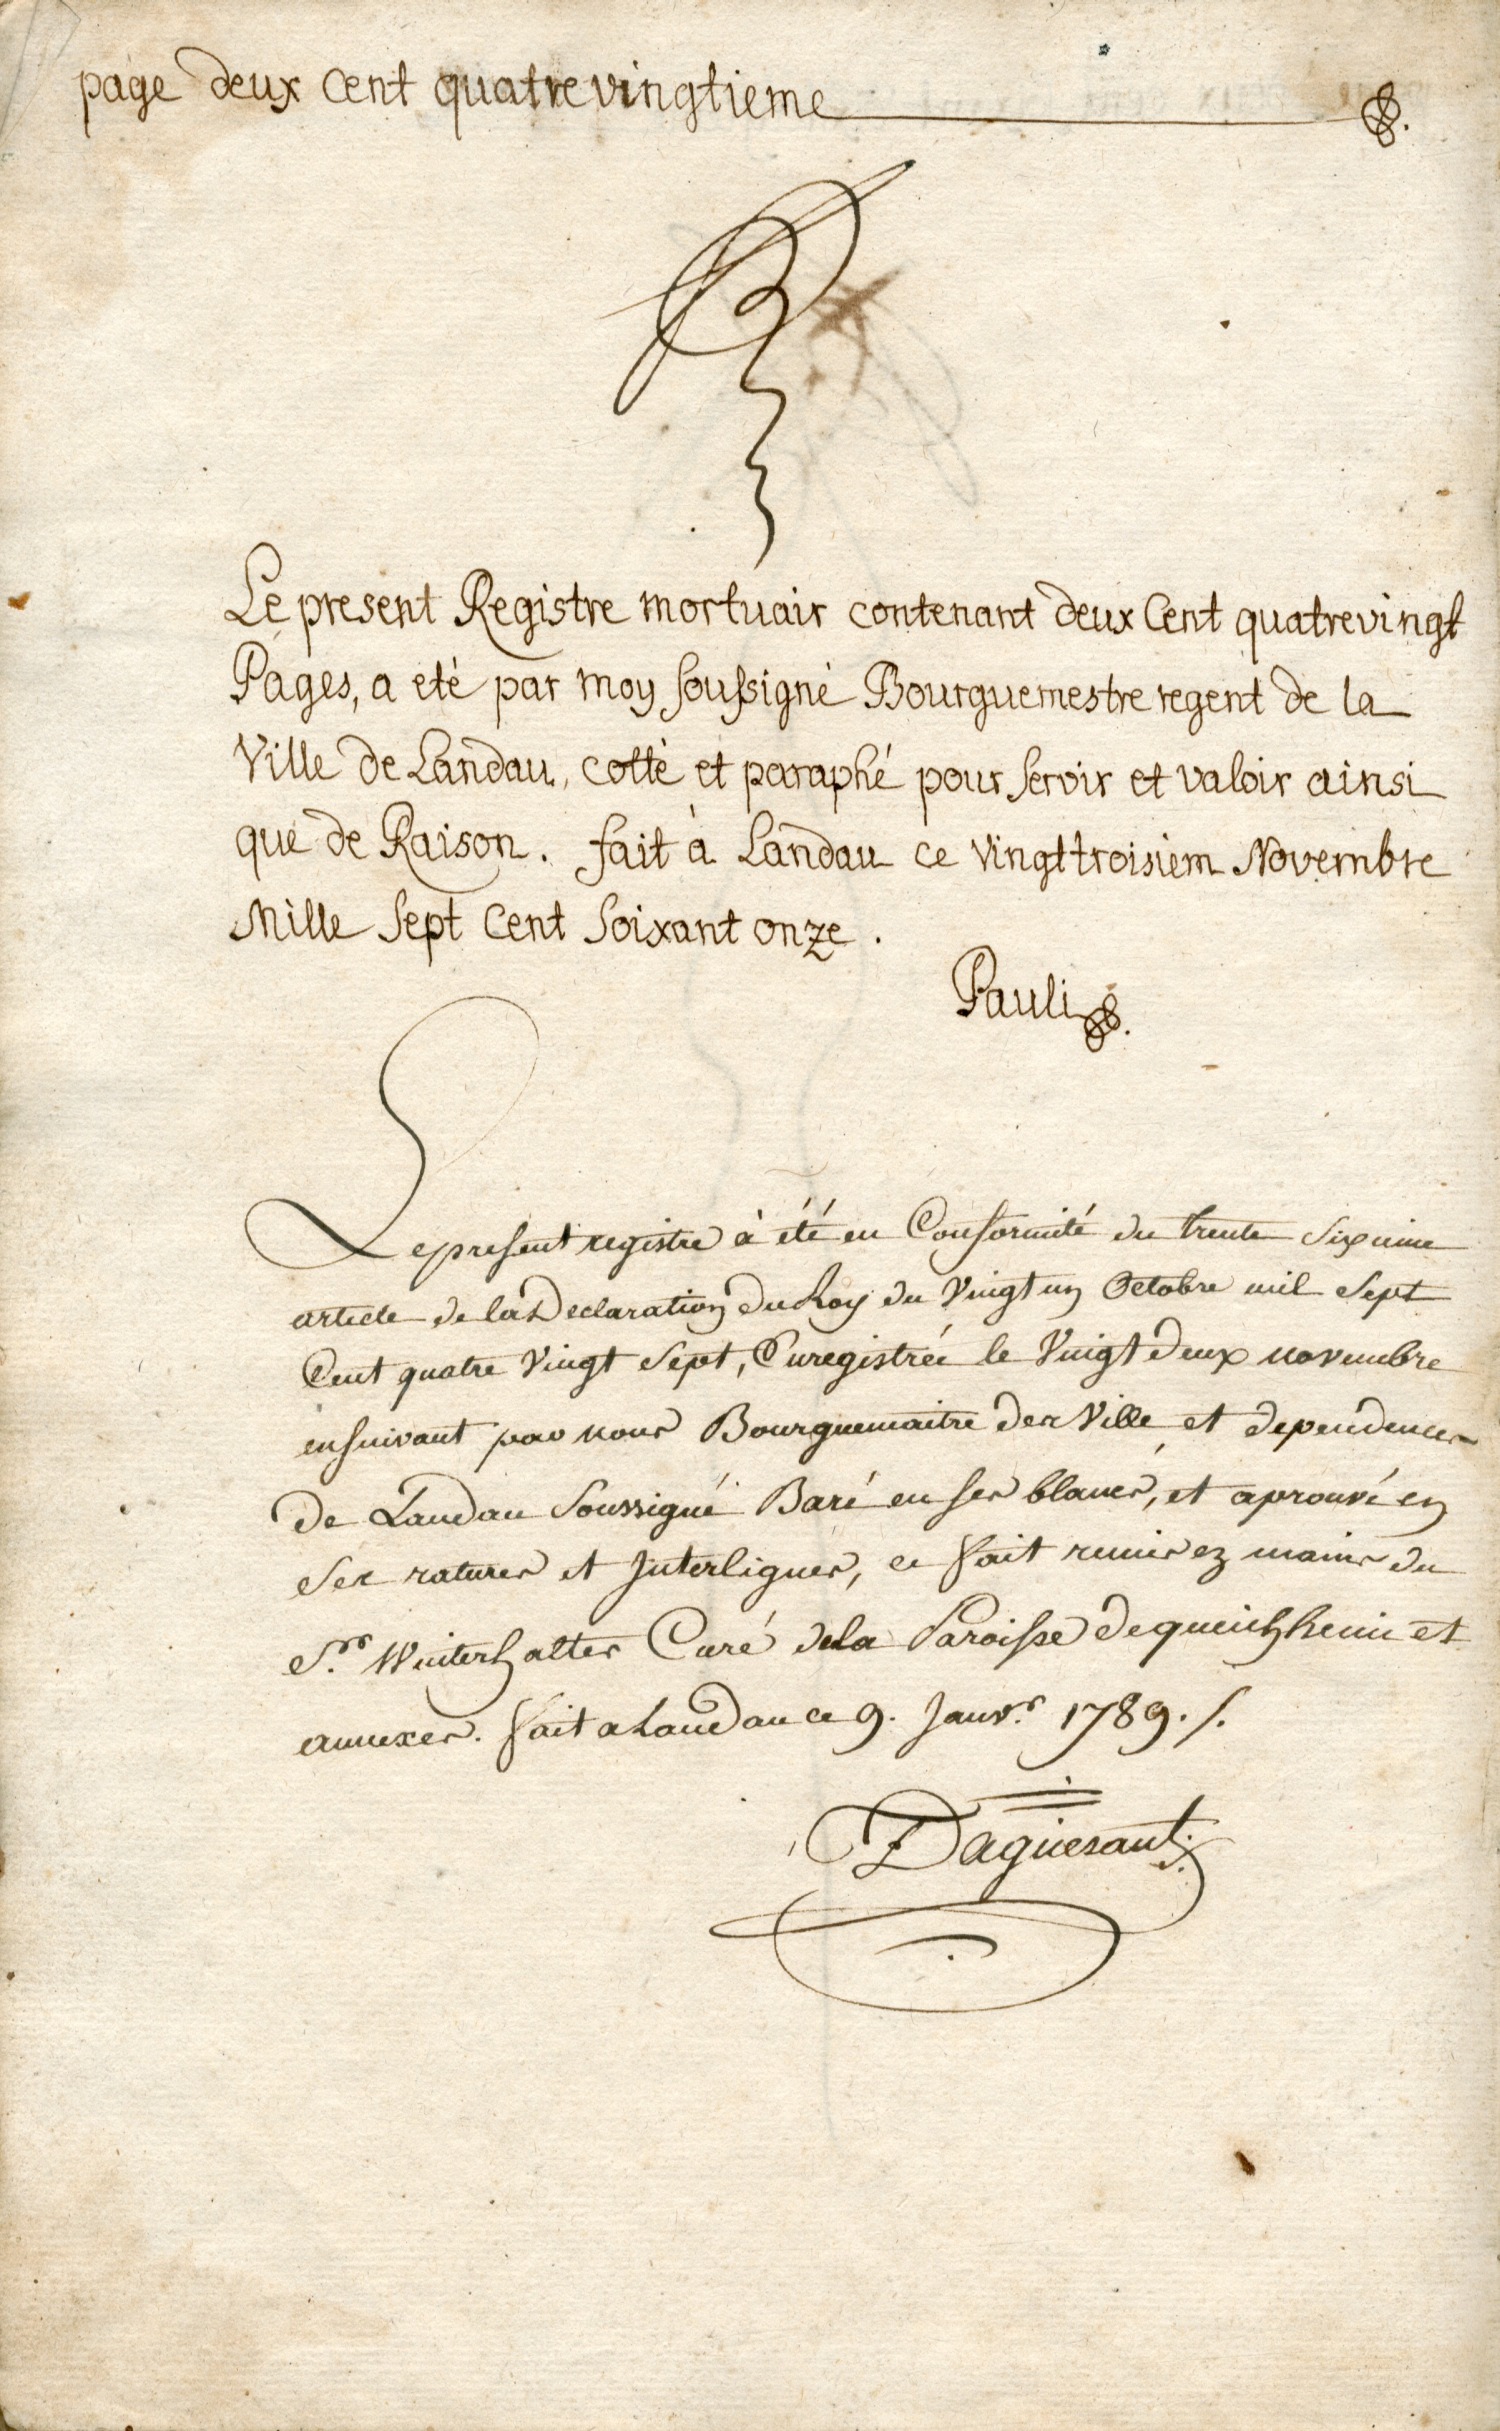 page deux Cent quatrevingtieme
Le present Registre mortuair contenant deux Cent quatrevingt
Pages, a eté par moy soussigné Bourguemestre regent de la
Ville de Landau, cotté et paraphé pour servir et valoir ainsi
que de Raison. fait à Landau ce vingttroisiem Novembre
Mille Sept Cent Soixant onze.
Pauli
Le present registre à été en Conformité du trente Sixieme
article de la Declaration du Roy du Vingt un Octobre mil Sept
Cent quatre Vingt Sept, Enregistrée le Vingt deux novembre
ensuivant par nous Bourguemaitre des Ville et dependences
de Landau Soussigné Baré en ses blancs, et aprouvé en
Ses ratures et Interlignes, ce fait remis ez mains du
S.r Winterhalter Curé de la Paroisse de queichheim et
annexes. fait a Landau ce 9. Janv.r 1789. /.